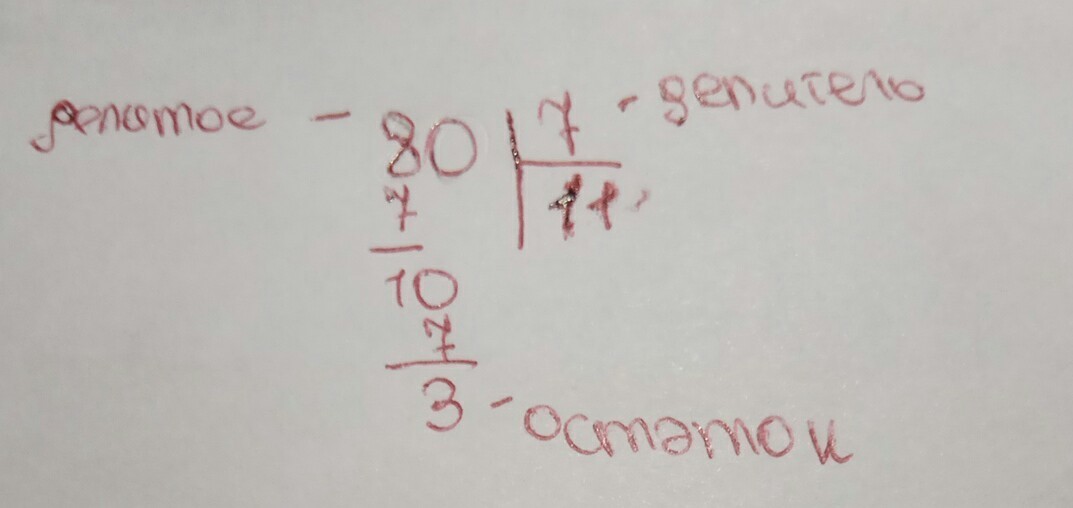 делатое - 80 7 - делитель
7 11
10
7
3 - остаток